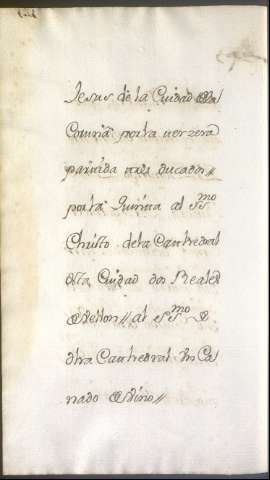 Jesus de la Ciudad de la
Coruña por la terzera
partida tres ducados//
por la Quinta al SSmo
Christo de la Cathedral
desta Ciudad dos Reales
de Vellon// al SSmo de
dha Cathedral Un Ca
nado de Vino//